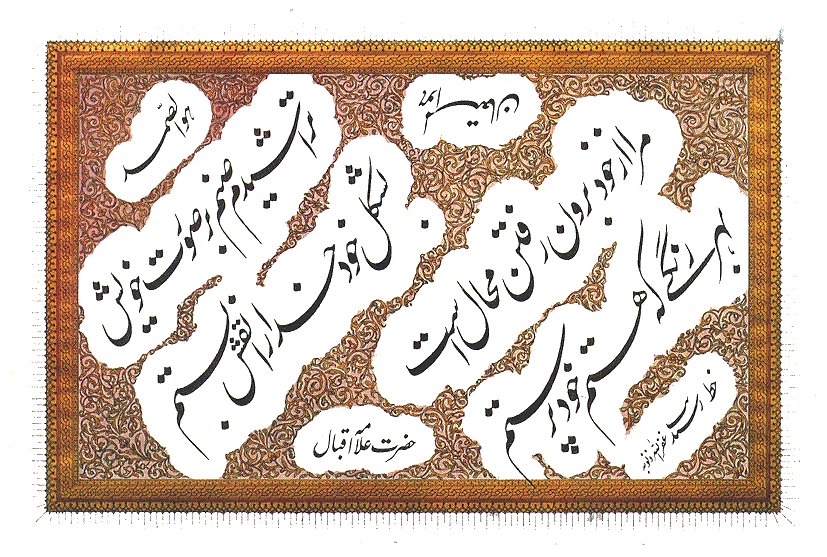 هوالصمد
تراشیدم صنم بر صورت خویش
بشکل خود خدا را نقش بستم
مرا از خود برون رفتن محال است
بہر رنگے کہ ہستم خود پرستم
حضرت علامہ اقبال
خط